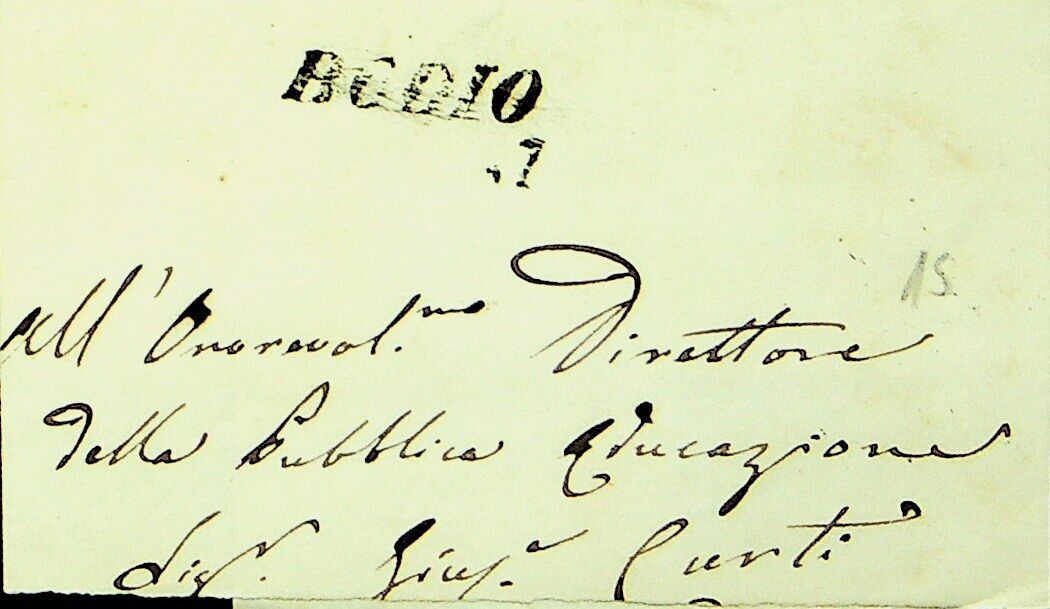 15
All'Onorevol.mo Direttore
della Pubblica Educazione
Sig.r Gius.e Curti